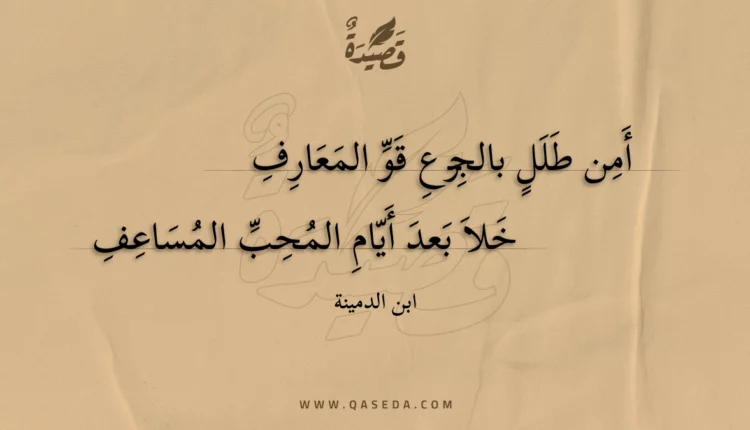 قَصِيدَةٌ
أَمِن طَلَلٍ بالجِزعِ قَوِّ المَعَارِفِ
خَلاَ بَعدَ أَيَّامِ المُحِبِّ المُسَاعِفِ
ابن الدمينة
WWW.QASEDA.COM